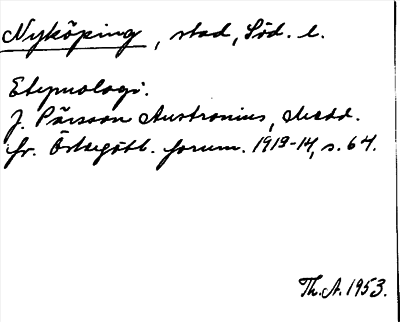 Nyköping, stad, Söd. l.
Etymologi.
J. Pärsson Austronius, Medd.
fr. Östergötl. fornm. 1913-14, s. 64.
Th. A. 1953.